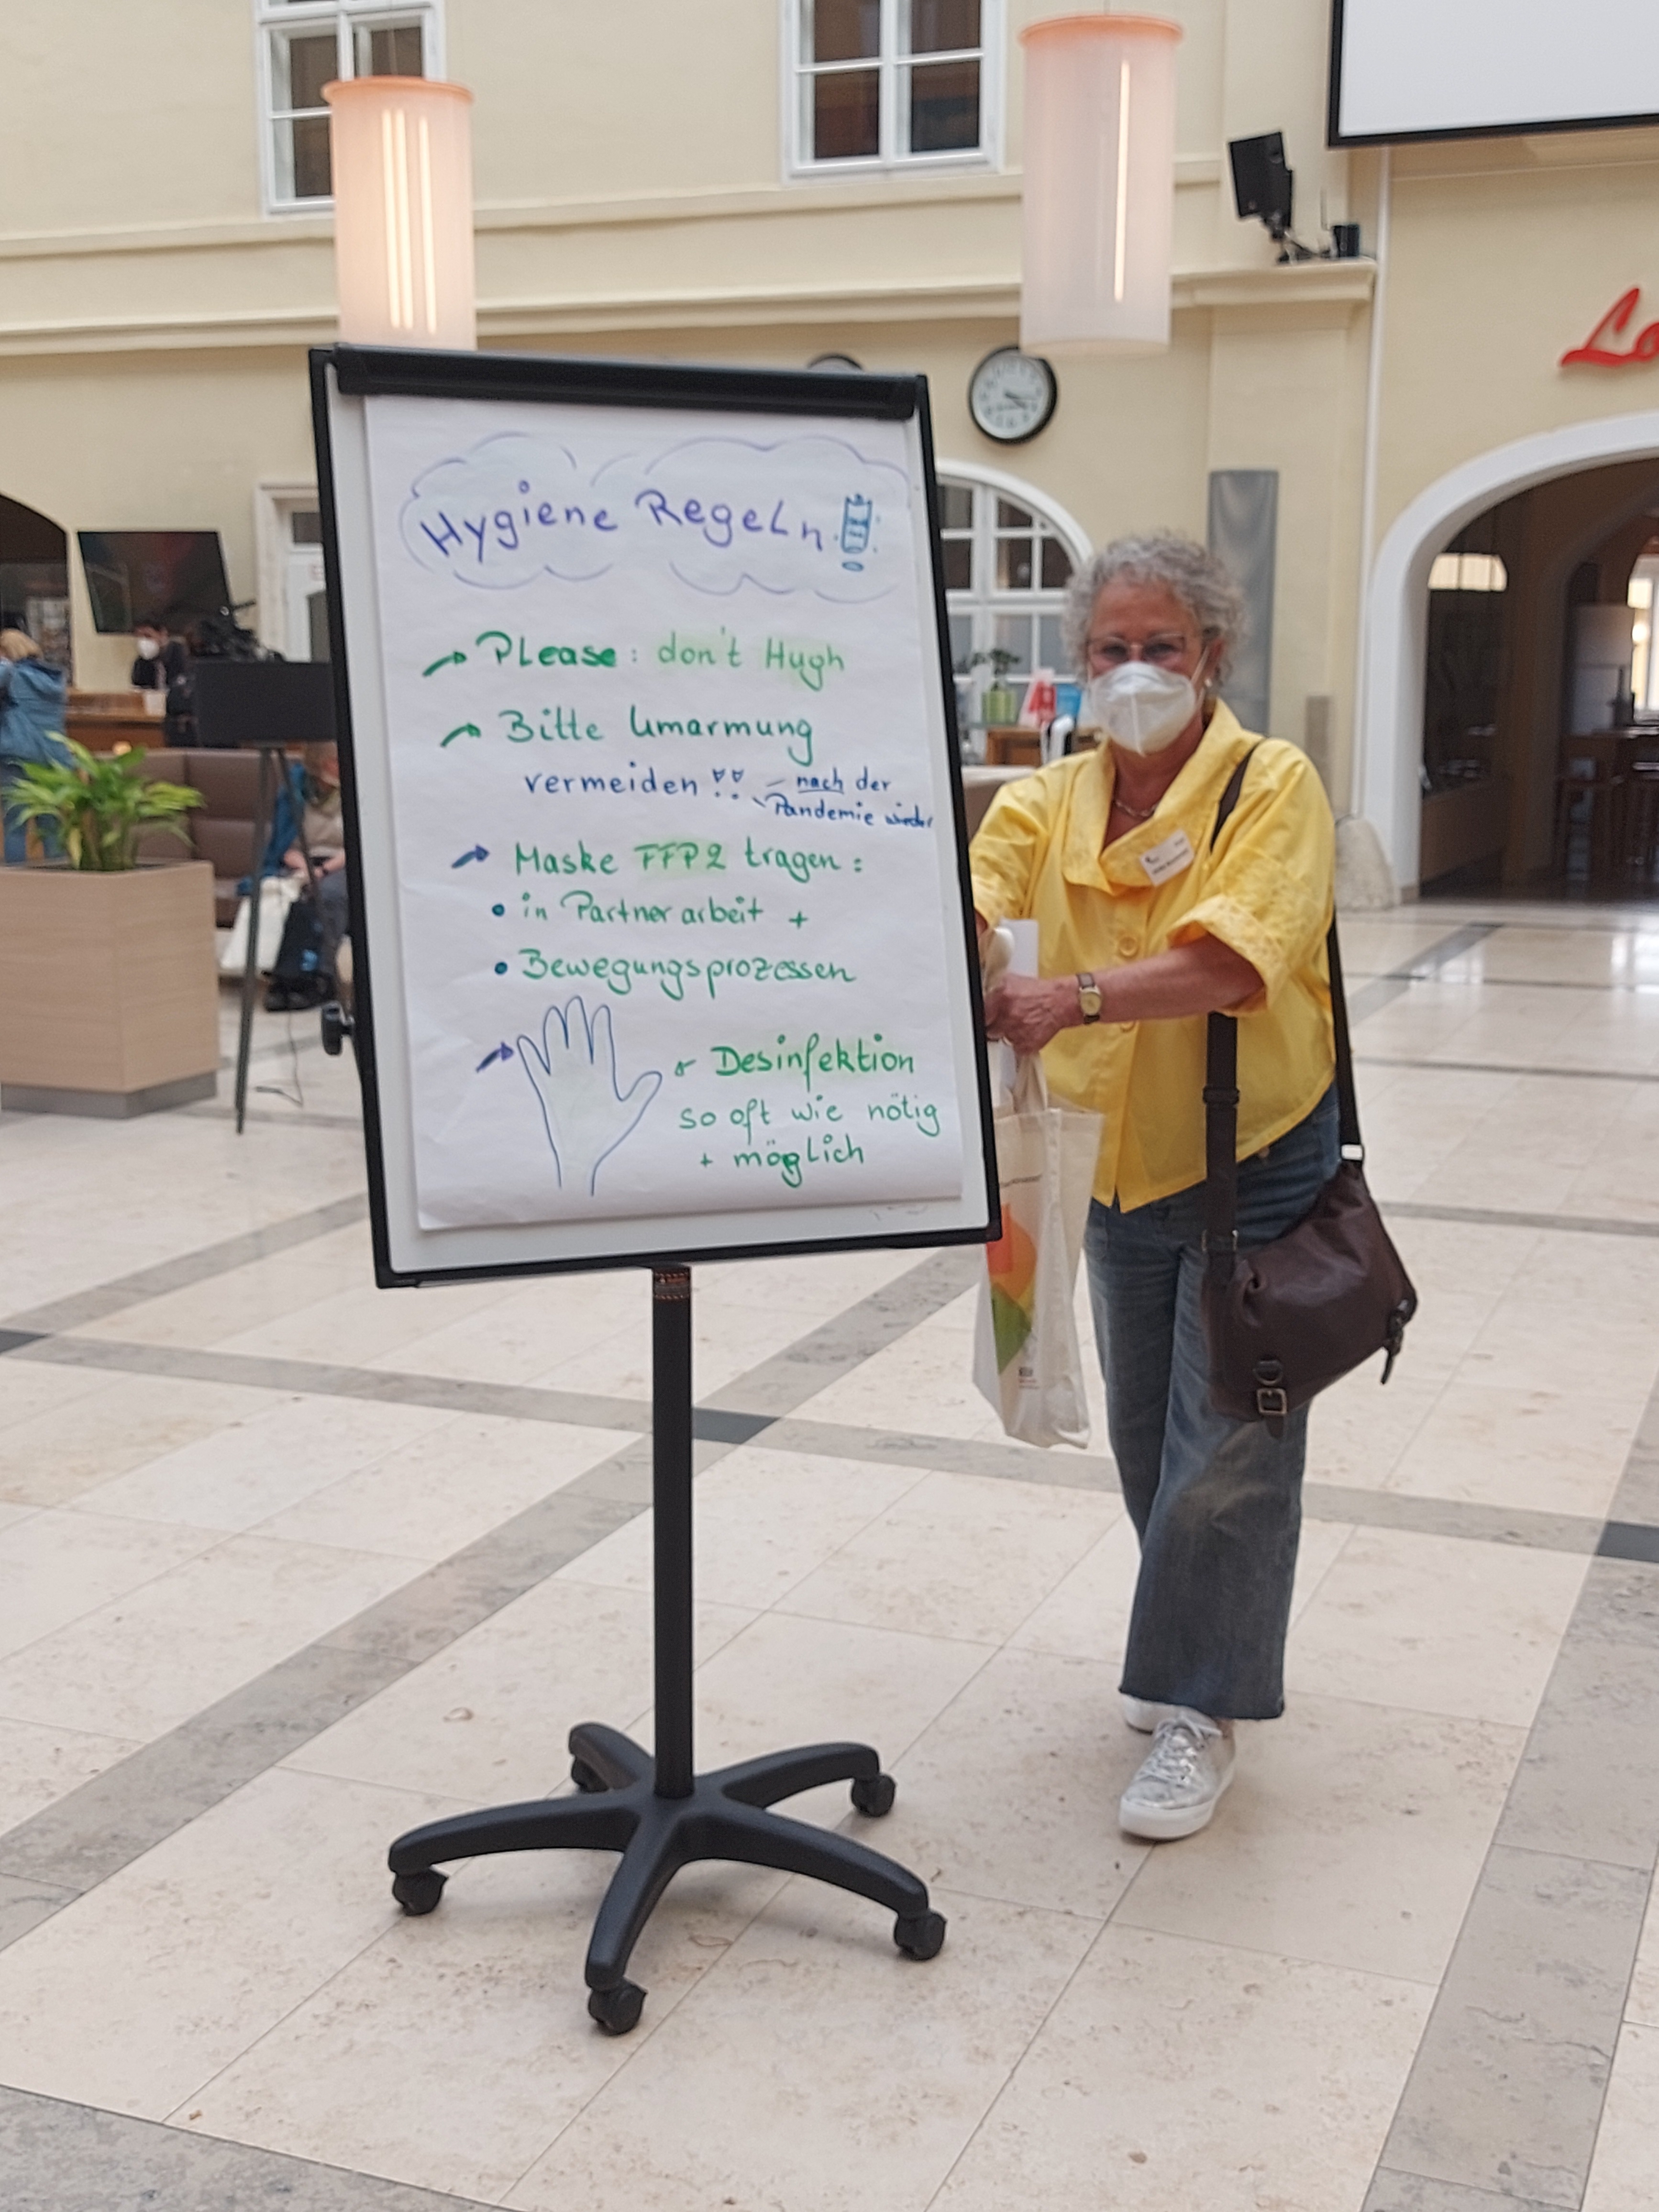 Hygiene Regeln
Please: don't Hugh
Bitte Umarmung
vermeiden !! nach der
Pandemie wieder
Maske FFP2 tragen:
• in Partnerarbeit +
• Bewegungsprozessen
Desinfektion
so oft wie nötig
+ möglich
Lo